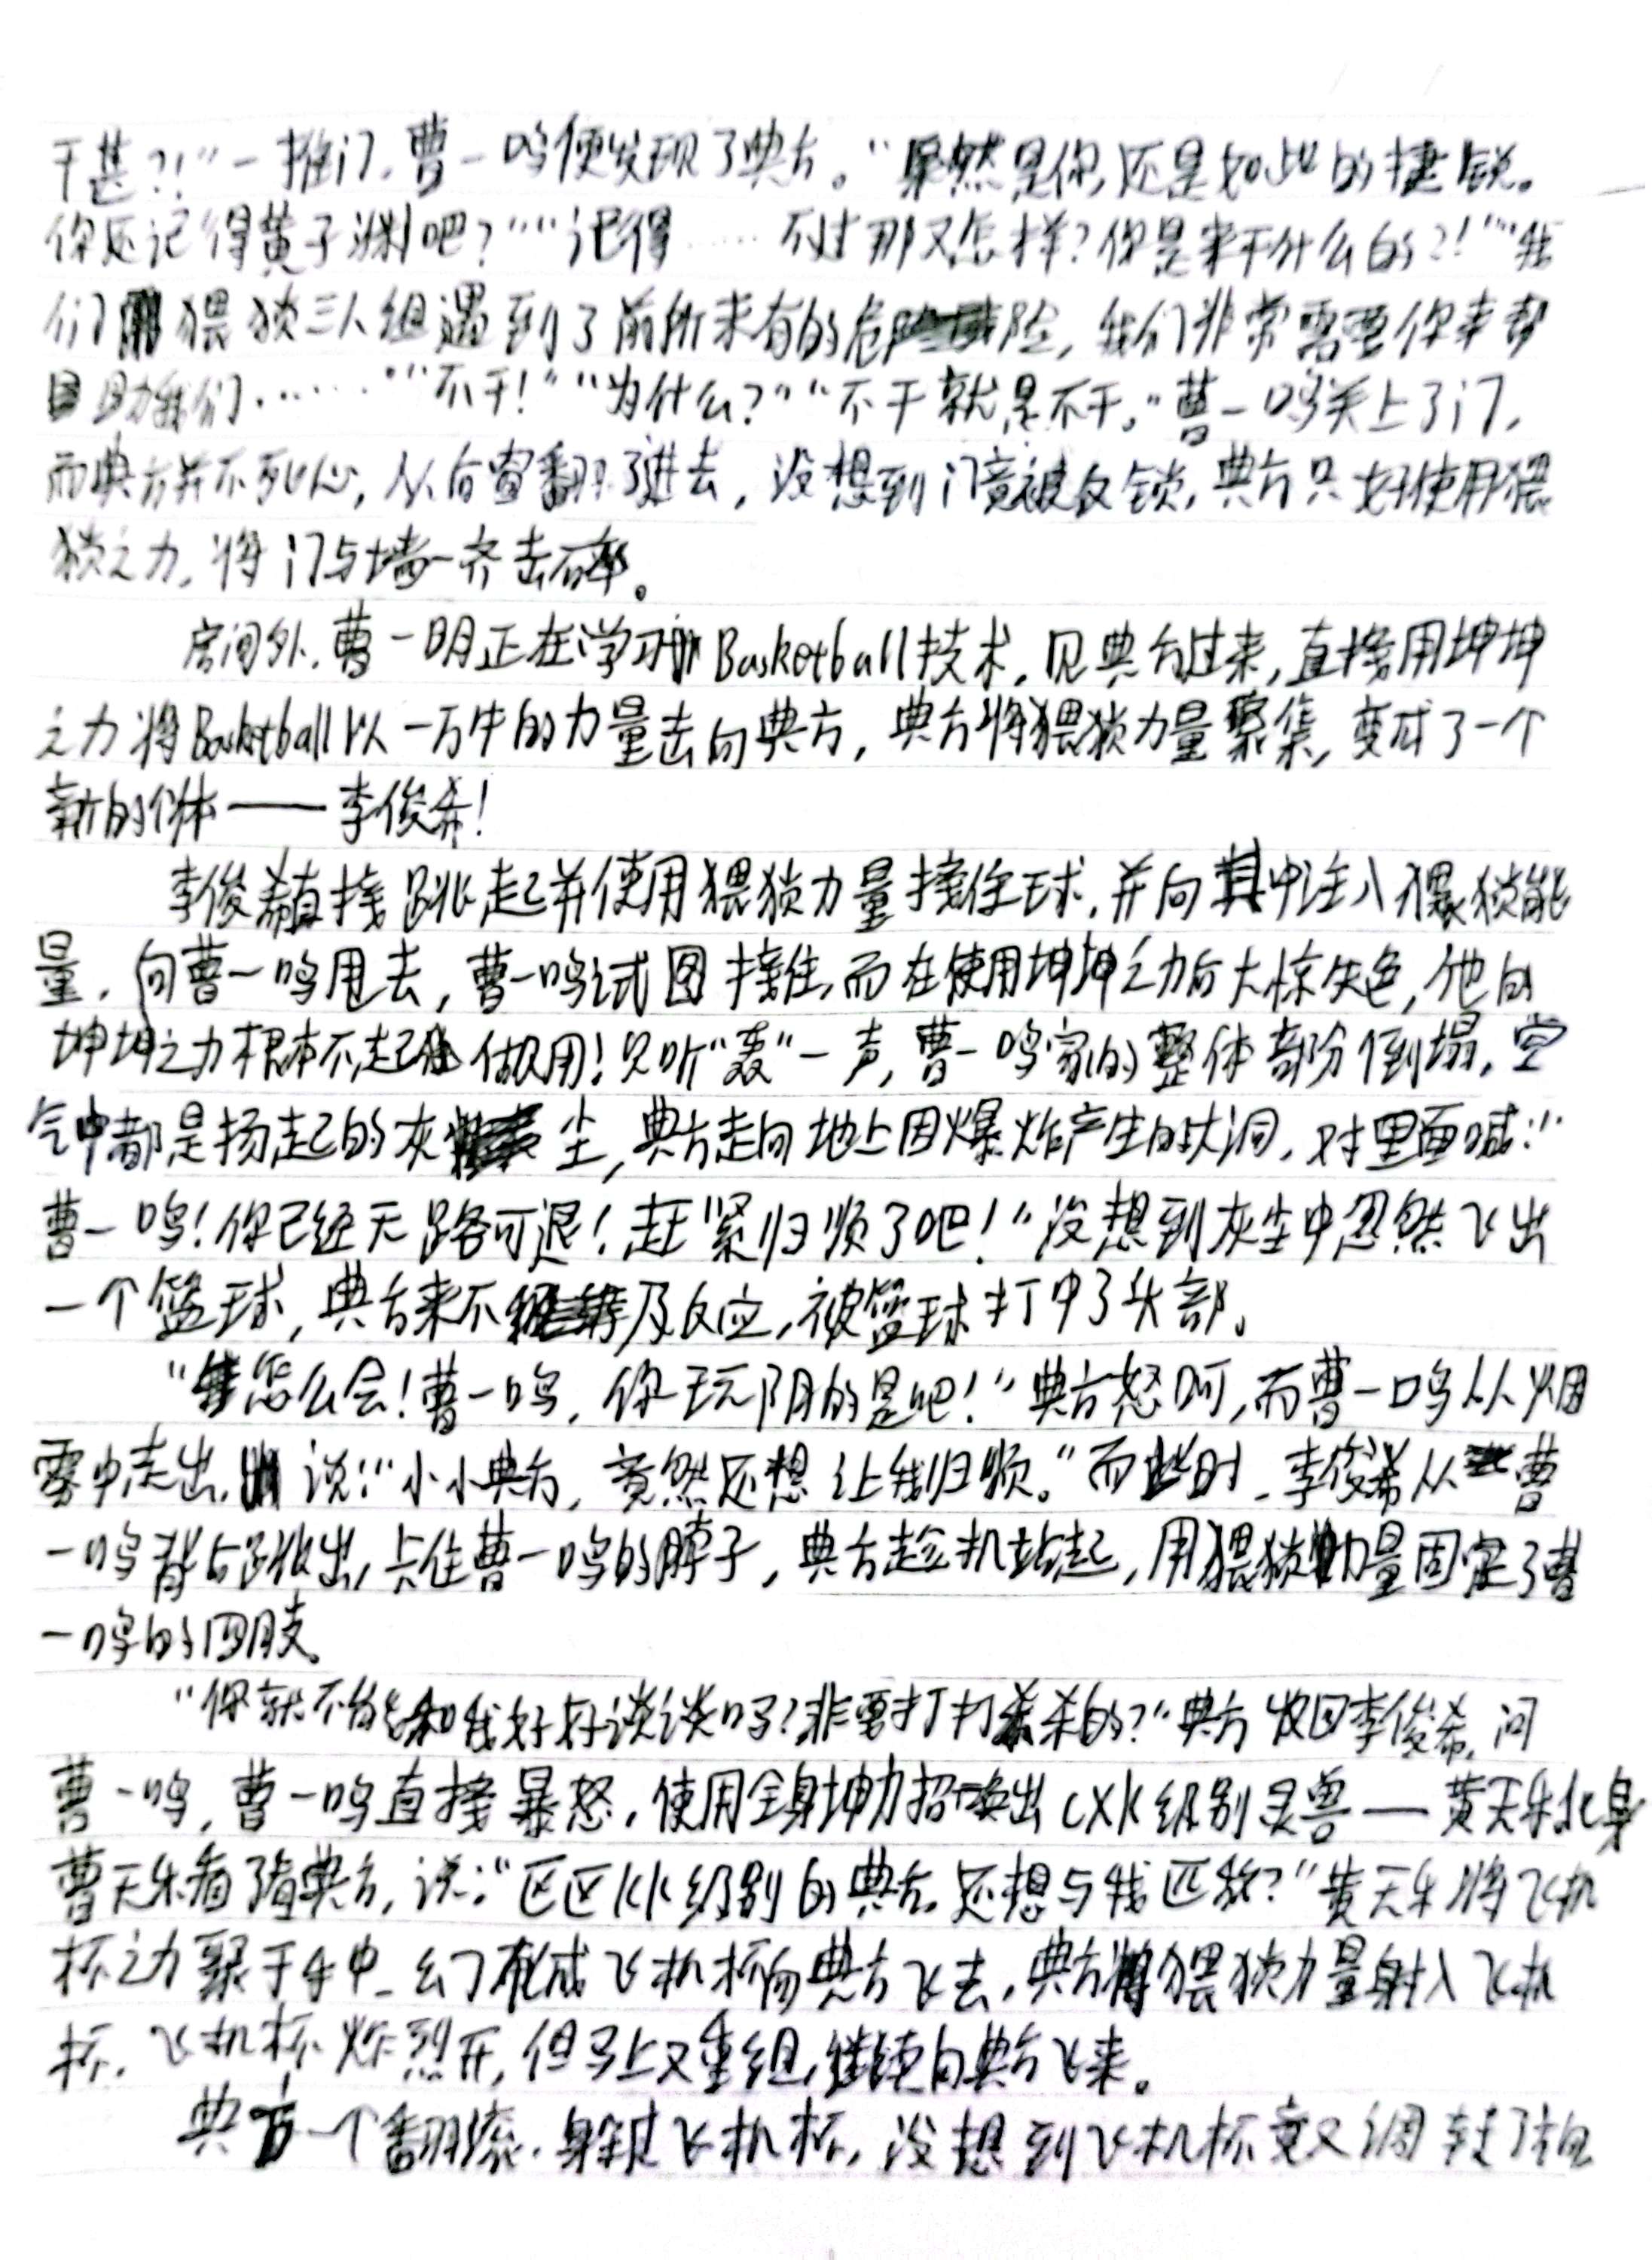 干甚?!”一推门，曹一鸣便发现了典方。“果然是你，还是如此的捷锐。
你还记得黄子渊吧？”“记得……不过那又怎样？你是来干什么的？!”“我
们猥琐三人组遇到了前所未有的危险，我们非常需要你来帮
助我们……”“不干！”“为什么？”“不干就是不干。”曹一鸣关上了门，
而典方并不死心，从后窗翻了进去，没想到门竟被反锁，典方只好使用猥
琐之力，将门与墙一齐击碎。
房间外，曹一明正在学习Basketball技术，见典方过来，直接用坤坤
之力将Basketball以一万牛的力量击向典方，典方将猥琐力量聚集，变成了一个
新的个体——李俊希！
李俊希直接跳起并使用猥琐力量接住球，并向其中注入猥琐能
量，向曹一鸣甩去，曹一鸣试图接住，而在使用坤坤之力后大惊失色，他的
坤坤之力根本不起做用！只听“轰”一声，曹一鸣家的整体部份倒塌，空
气中都是扬起的灰尘，典方走向地上因爆炸产生的大洞，对里面喊：“
曹一鸣！你已经无路可退！赶紧归顺了吧！”没想到灰尘中忽然飞出
一个篮球，典方来不及反应，被篮球打中了头部。
“怎么会！曹一鸣，你玩阴的是吧！”典方怒呵，而曹一鸣从烟
雾中走出，说：“小小典方，竟然还想让我归顺。”而此时，李俊希从曹
一鸣背后跳出，卡住曹一鸣的脖子，典方趁机站起，用猥琐力量固定了曹
一鸣的四肢。
“你就不能和我好好谈谈吗？非要打打杀杀的？”典方收回李俊希，问
曹一鸣，曹一鸣直接暴怒，使用全身坤力招唤出CXK级别灵兽——黄天乐化身
曹天乐看了看典方，说：“区区KK级别的典方，还想与我匹敌？”黄天乐将飞机
杯之力聚于手中，幻化成飞机杯向典方飞去，典方将猥琐力量射入飞机
杯，飞机杯炸烈开，但马上又重组，继续向典方飞来。
典方一个翻滚，躲过飞机杯，没想到飞机杯竟又调转了